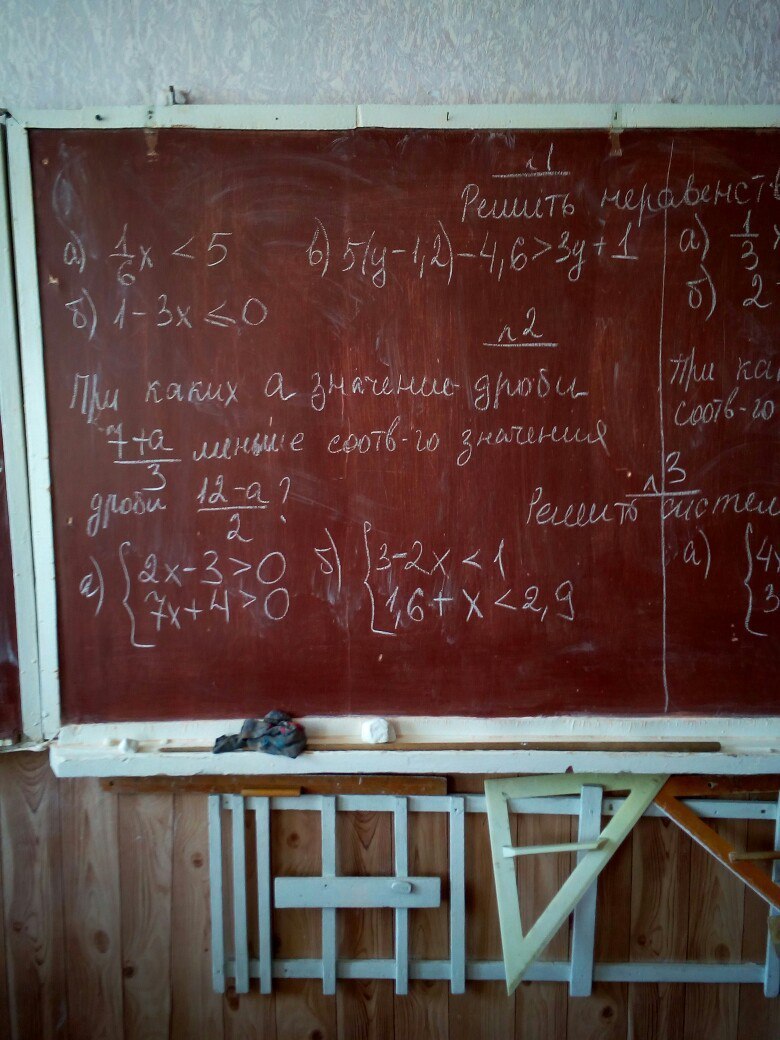 №1
Решить неравенств
а) 1/6 x < 5 в) 5(y-1,2)-4,6>3y+1
б) 1-3x ≤ 0
№2
При каких а значение дроби
7+а/3 меньше соотв-го значения
дроби 12-а/2?
№3
Решить систем
а) {2x-3>0 б) {3-2x<1
7x+4>0 1,6+x<2,9
а) 1/3
б) 2
При как
соотв-го
а) {4x
3